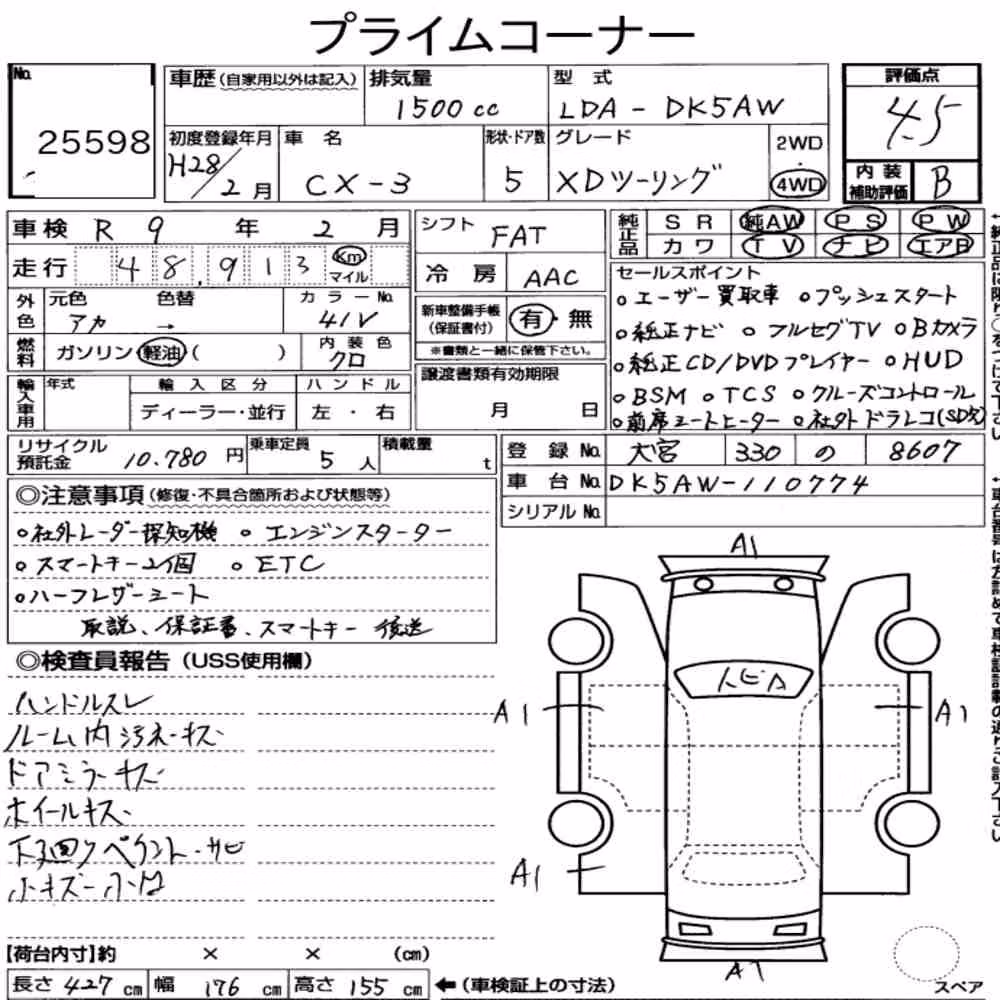 プライムコーナー
No.
25598
車歴(自家用以外は記入)
排気量
1500 cc
型 式
LDA - DK5AW
評価点
4.5
内装補助評価
B
初度登録年月
H28/2月
車 名
CX-3
形状・ドア数
5
グレード
XDツーリング
2WD
・
4WD
車検 R 9 年 2 月
走行 48,913 Km マイル
シフト
FAT
冷 房 AAC
純正品
S R 純AW P S P W
カ ワ T V ナビ エアB
外色
元色 アカ
色替 →
カラーNo. 41V
燃料
ガソリン 軽油 ( )
内装色
クロ
新車整備手帳(保証書付)
有・無
※書類と一緒に保管下さい。
セールスポイント
○ユーザー買取車 ○プッシュスタート
○純正ナビ ○フルセグTV ○Bカメラ
○純正CD/DVDプレイヤー ○HUD
○BSM ○TCS ○クルーズコントロール
○前席シートヒーター ○社外ドラレコ(SD欠)
輸入車用
年式
輸入区分
ディーラー・並行
ハンドル
左・右
譲渡書類有効期限
月 日
リサイクル預託金 10.780 円
乗車定員 5 人
積載量 t
登 録 No. 大宮 330 の 8607
車 台 No. DK5AW-110774
シリアル No.
◎注意事項(修復・不具合箇所および状態等)
○社外レーダー探知機 ○エンジンスターター
○スマートキー2個 ○ETC
○ハーフレザーシート
取説、保証書、スマートキー 後送
◎検査員報告(USS使用欄)
ハンドルスレ
ルーム内汚れ・キズ
ドアミラーキズ
ホイールキズ
下廻りペイント・サビ
小キズ・小凹
A1
トビA
A1
A1
A1
A7
【荷台内寸】約 × × (cm)
長さ 427 cm 幅 176 cm 高さ 155 cm
←(車検証上の寸法)
スペア